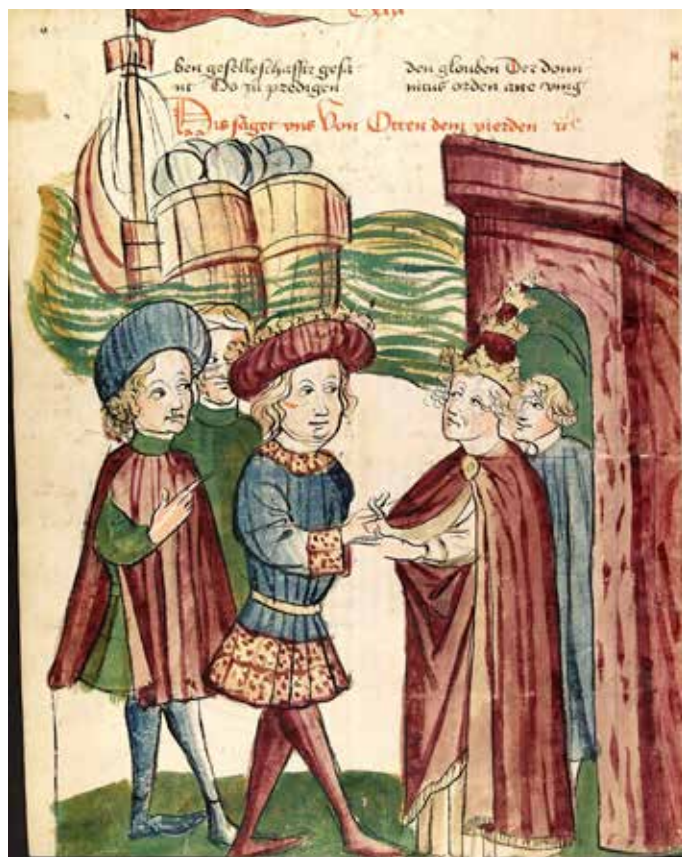 ben geselleschafft gesa
nt Do zu predigen
den glouben Der domi
nicus orden ane ving
Dis saget vns Von Otten dem vierden